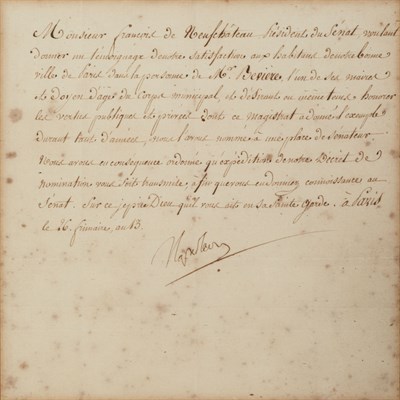 Monsieur françois de Neufchâteau Président du Sénat, voulant
donner un témoignage de notre satisfaction aux habitans de notre bonne
ville de Paris dans la personne de Mr. Bevière, l'un de ses maires
et Doyen d'âge du Corps municipal, et désirant en même tems honorer
les vertus publiques et privées dont ce magistrat a donné l'exemple
durant tant d'années, nous l'avons nommé à une place de Senateur.
Nous avons en conséquence ordonné qu'expédition de notre Décret de
nomination vous soit transmise, afin que vous en donniez connoissance au
Senat. Sur ce je prie Dieu qu'il vous ait en sa Sainte Garde. à Paris
le 26. frimaire, an 13.